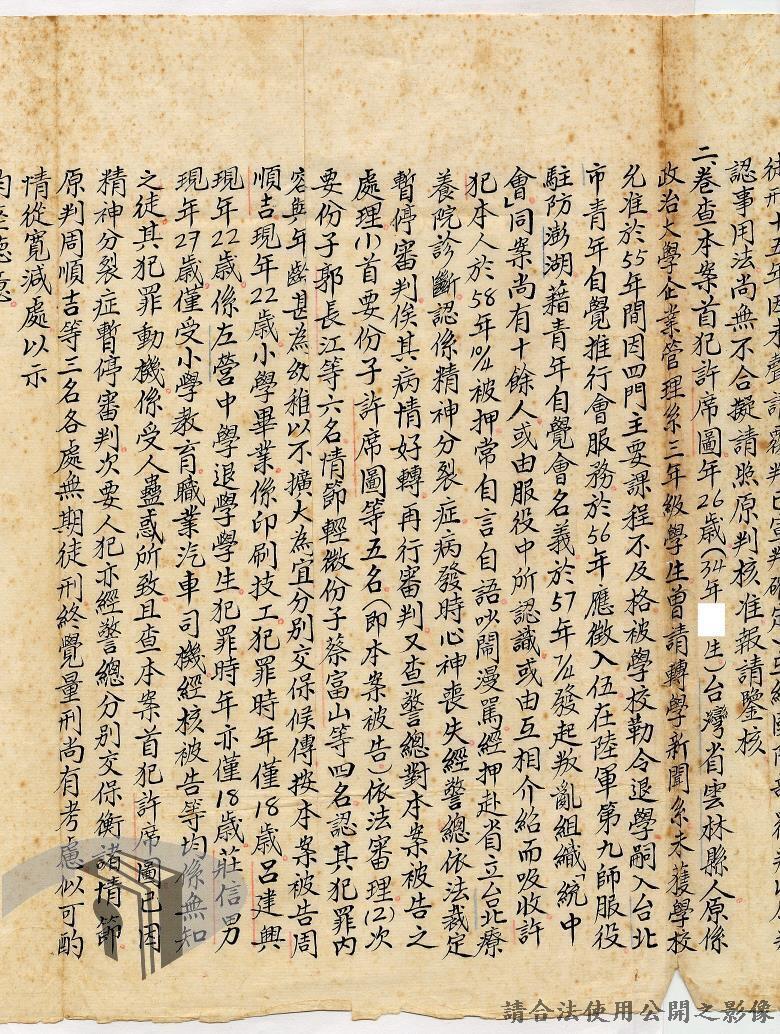 認事用法尚無不合擬請照原判核准報請鑒核
二、卷查本案首犯許席圖年26歲(34年 生)台灣省雲林縣人原係
政治大學企業管理系三年級學生曾請轉學新聞系未獲學校
允准於55年間因四門主要課程不及格被學校勒令退學嗣入台北
市青年自覺推行會服務於56年應徵入伍在陸軍第九師服役
駐防澎湖藉青年自覺會名義於57年7/4發起叛亂組織「統中
會」同案尚有十餘人或由服役中所認識或由互相介紹而吸收許
犯本人於58年10/4被押常自言自語吵鬧漫罵經押赴省立台北療
養院診斷認係精神分裂症病發時心神喪失經警總依法裁定
暫停審判俟其病情好轉再行審判又查警總對本案被告之
處理(1)首要份子許席圖等五名(即本案被告)依法審理(2)次
要份子郭長江等六名情節輕微份子蔡富山等四名認其犯罪內
容與年齡甚為幼稚以不擴大為宜分別交保候傳按本案被告周
順吉現年22歲小學畢業係印刷技工犯罪時年僅18歲呂建興
現年22歲係左營中學退學學生犯罪時年亦僅18歲莊信男
現年27歲僅受小學教育職業汽車司機經核被告等均係無知
之徒其犯罪動機係受人蠱惑所致且查本案首犯許席圖已因
精神分裂症暫停審判次要人犯亦經警總分別交保衡諸情節
原判周順吉等三名各處無期徒刑終覺量刑尚有考慮似可酌
情從寬減處以示
請合法使用公開之影像